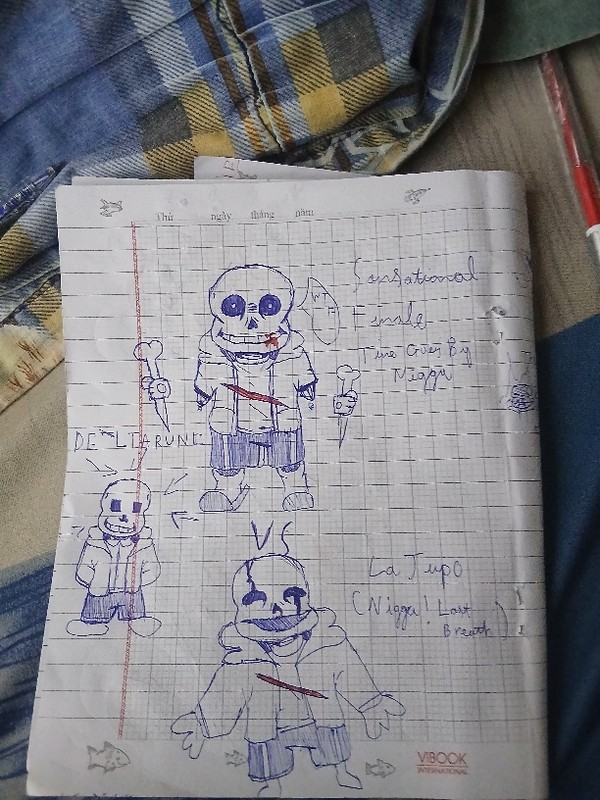 Thứ ngày tháng năm
Sensational
Finale
Time Goes By
Nigga
WTF
DELTARUNE
VS
La Tupo
(Nigga! Last
Breath)
VIBOOK
INTERNATIONAL